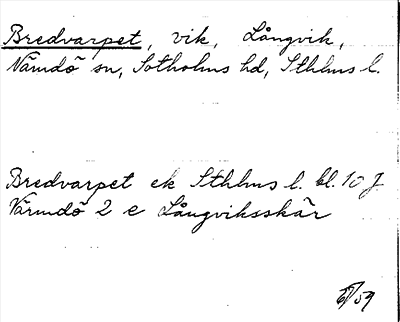 Bredvarpet, vik, Långvik,
Värmdö sn, Sotholms hd, Sthlms l.
Bredvarpet ek Sthlms l. bl. 10 J
Värmdö 2 e Långviksskär
/59